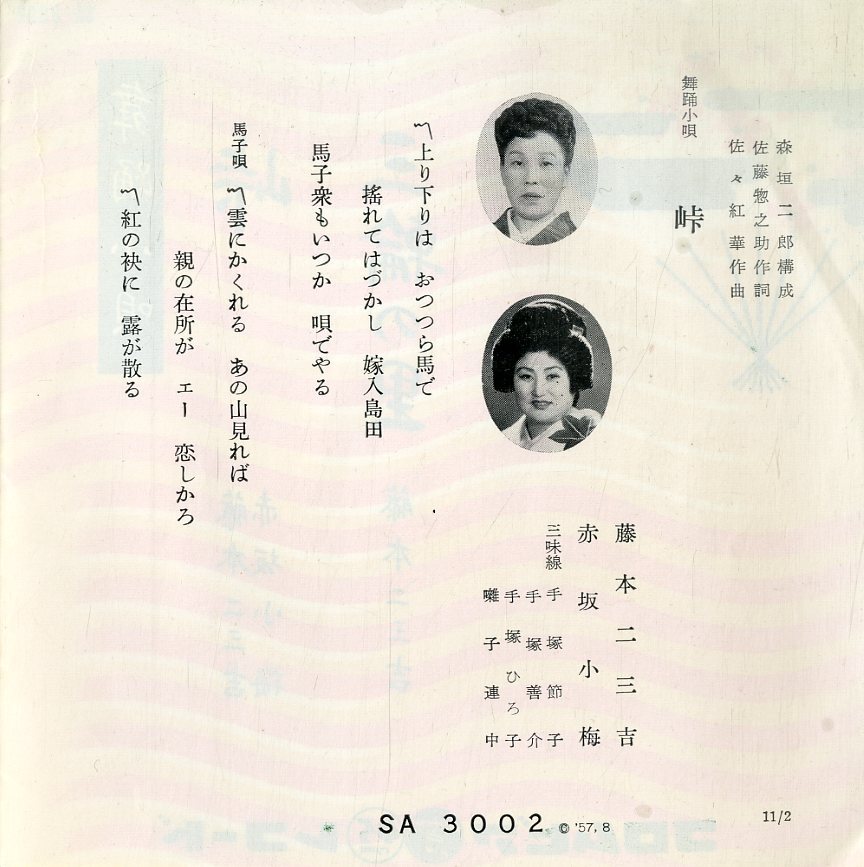 森垣二郎構成
佐藤惣之助作詞
佐々紅華作曲
舞踊小唄
峠
藤本二三吉
赤坂小梅
三味線 手塚節子
手塚善介
手塚ひろ子
囃子連中
〽上り下りは おつつら馬で
搖れてはづかし 嫁入島田
馬子衆もいつか 唄でやる
馬子唄 〽雲にかくれる あの山見れば
親の在所が エー 恋しかろ
〽紅の袂に 露が散る
SA 3002 © '57, 8
11/2